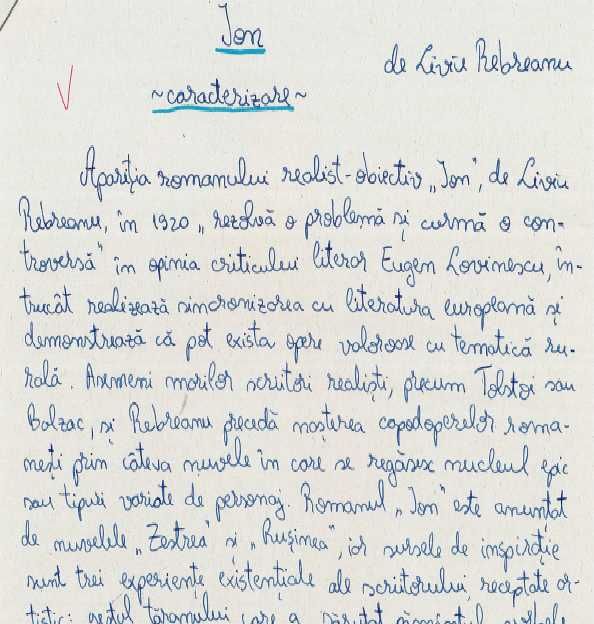 Ion
de Liviu Rebreanu
~caracterizare~
Apariția romanului realist-obiectiv „Ion”, de Liviu
Rebreanu, în 1920 „rezolvă o problemă și curmă o con-
troversă” în opinia criticului literar Eugen Lovinescu, în-
trucât realizează sincronizarea cu literatura europeană și
demonstrează că pot exista opere valoroase cu tematică ru-
rală. Asemeni marilor scriitori realiști, precum Tolstoi sau
Balzac, și Rebreanu precedă nașterea capodoperelor roma-
nești prin câteva nuvele în care se regăsesc nucleul epic
sau tipuri variate de personaj. Romanul „Ion” este anunțat
de nuvelele „Zestrea” și „Rușinea”, iar sursele de inspirație
sunt trei experiențe existențiale ale scriitorului, receptate ar-
tistic: gestul țăranului care a sărutat pământul, vorbele